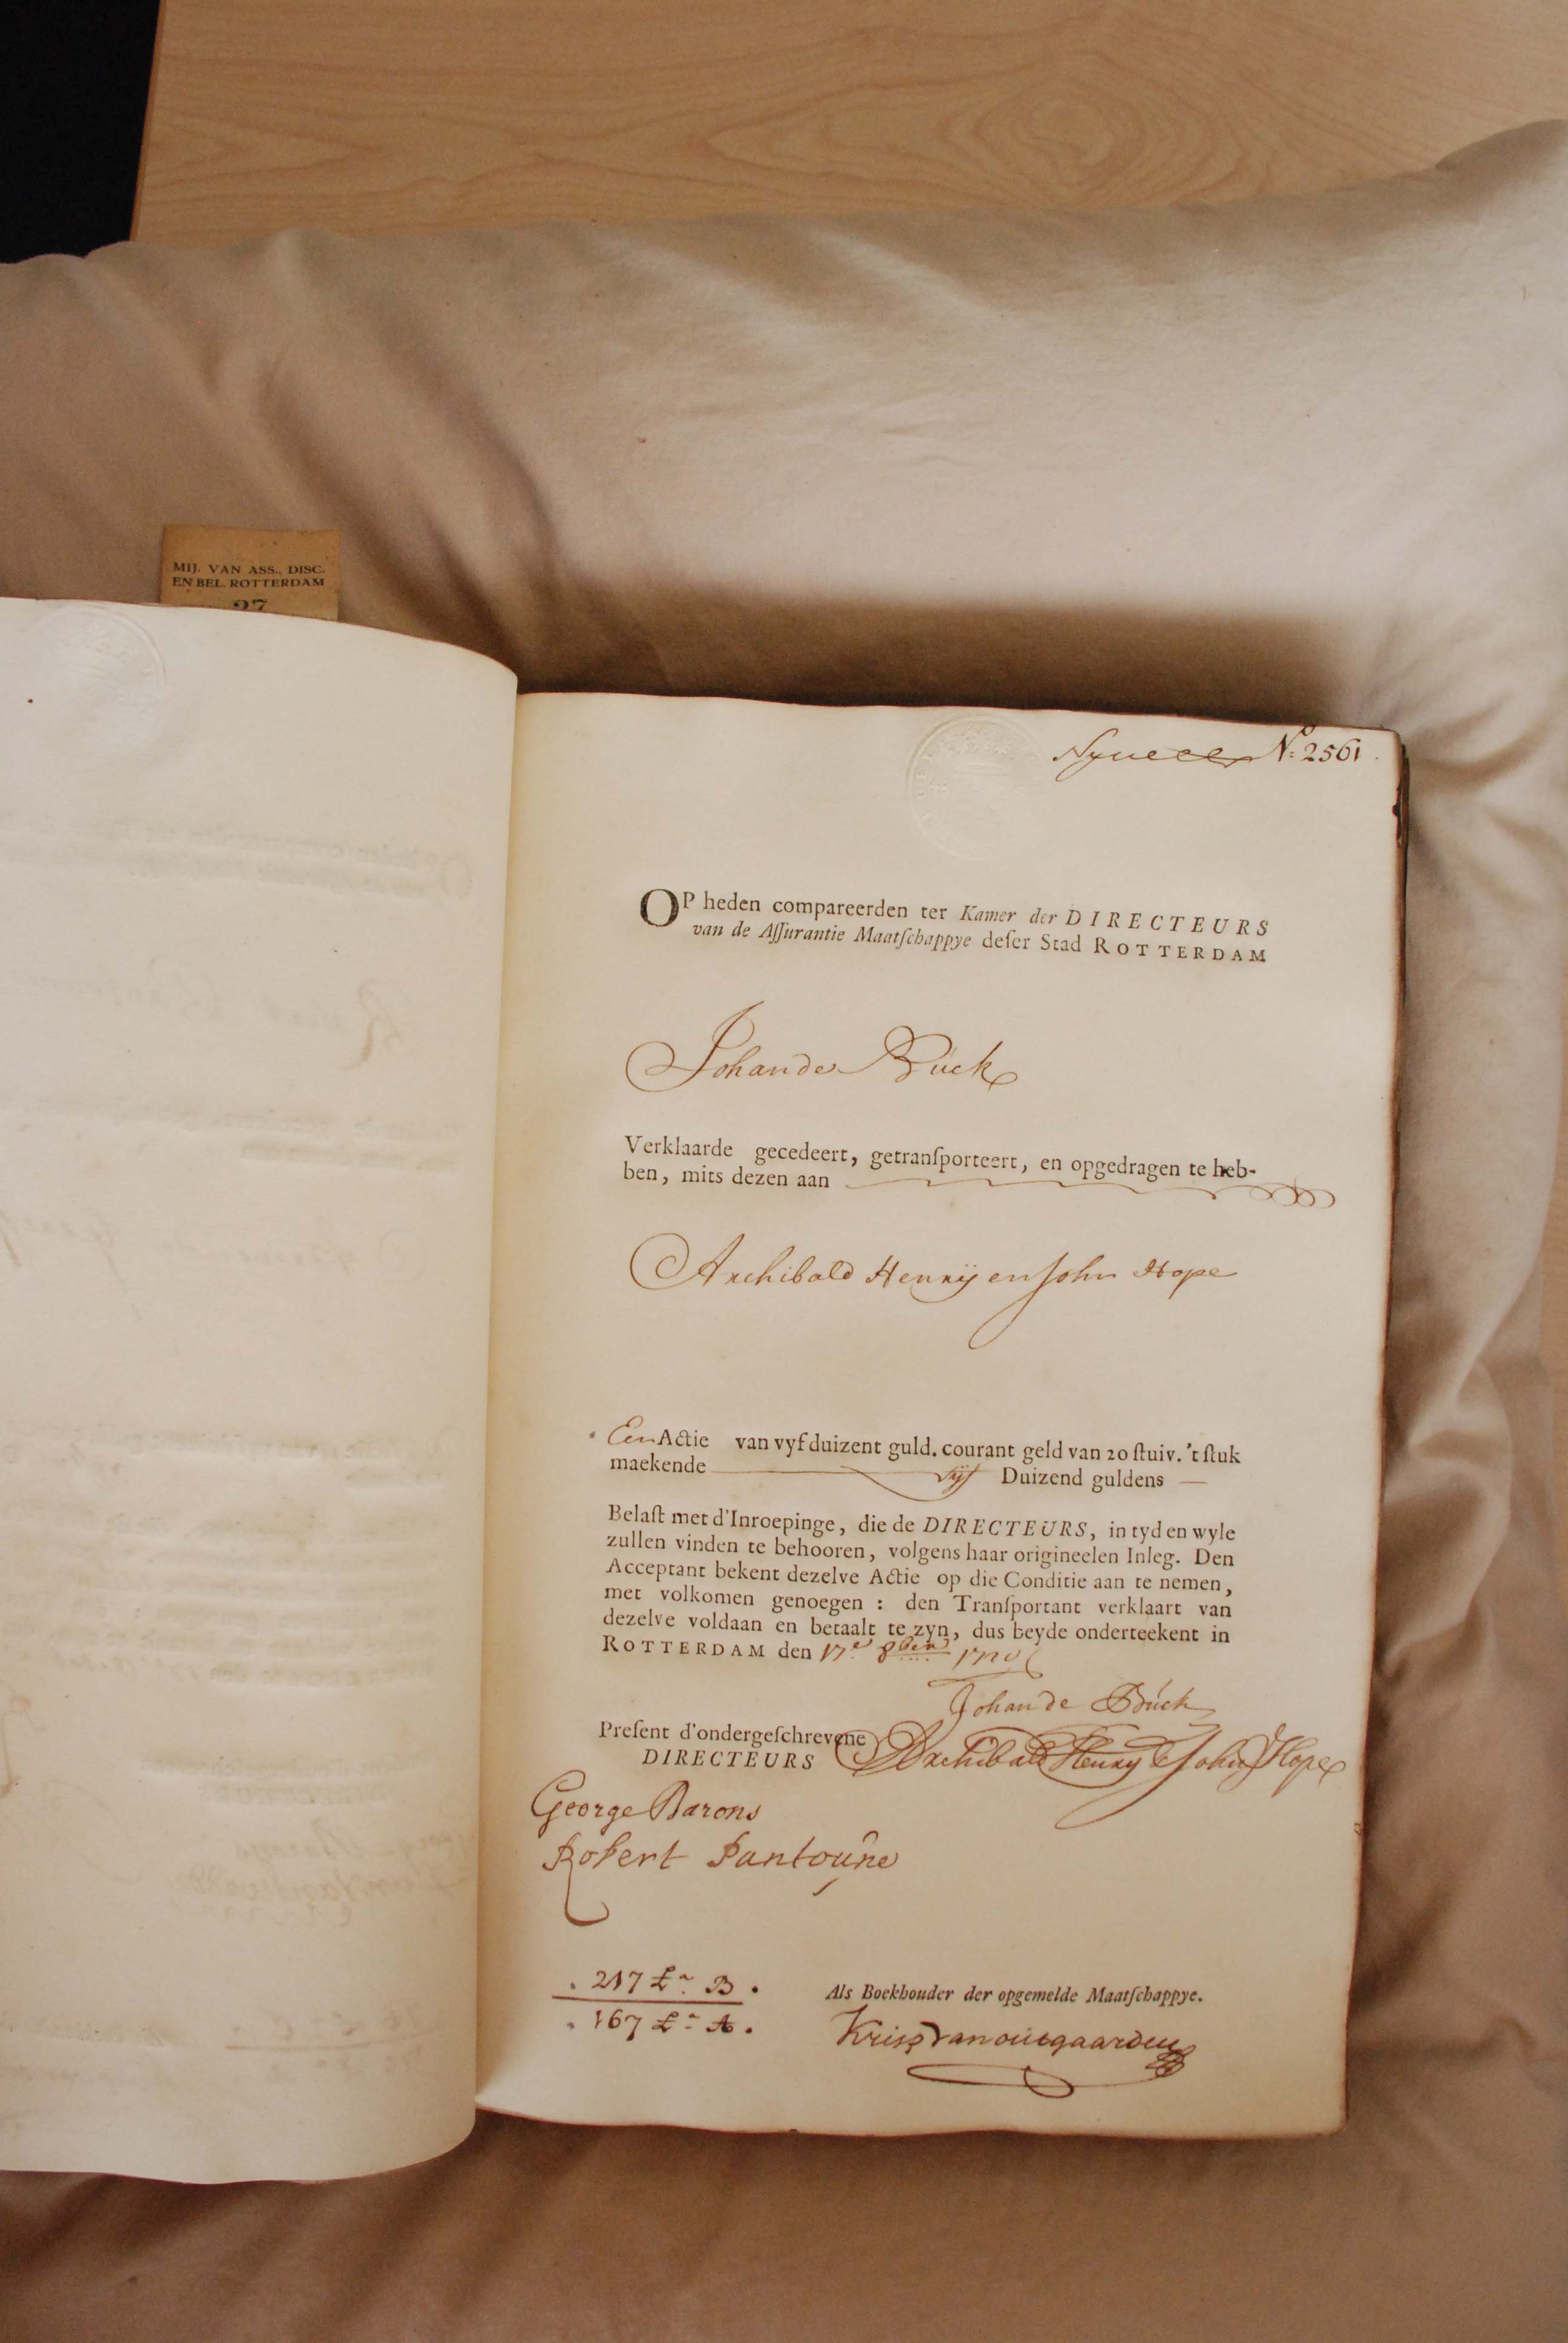 MIJ. VAN ASS., DISC.
EN BEL. ROTTERDAM
27
No 2561
OP heden compareerden ter Kamer der DIRECTEURS
van de Aſſurantie Maatſchappye deſer Stad ROTTERDAM
Johan de Bück
Verklaarde gecedeert, getranſporteert, en opgedragen te heb-
ben, mits dezen aan
Archibald Henrij en John Hope
Een Actie van vyf duizent guld. courant geld van 20 ſtuiv. 't ſtuk
maekende vijf Duizend guldens —
Belaſt met d'Inroepinge, die de DIRECTEURS, in tyd en wyle
zullen vinden te behooren, volgens haar origineelen Inleg. Den
Acceptant bekent dezelve Actie op die Conditie aan te nemen,
met volkomen genoegen : den Tranſportant verklaart van
dezelve voldaan en betaalt te zyn, dus beyde onderteekent in
ROTTERDAM den 17e 8ber 1720
Johan de Bück
Preſent d'ondergeſchrevene
DIRECTEURS
Archibald Henry & John Hope
George Barons
Robert Pantoune
217 Lra B.
167 Lra A.
Als Boekhouder der opgemelde Maatſchappye.
Krisp van outgaarden